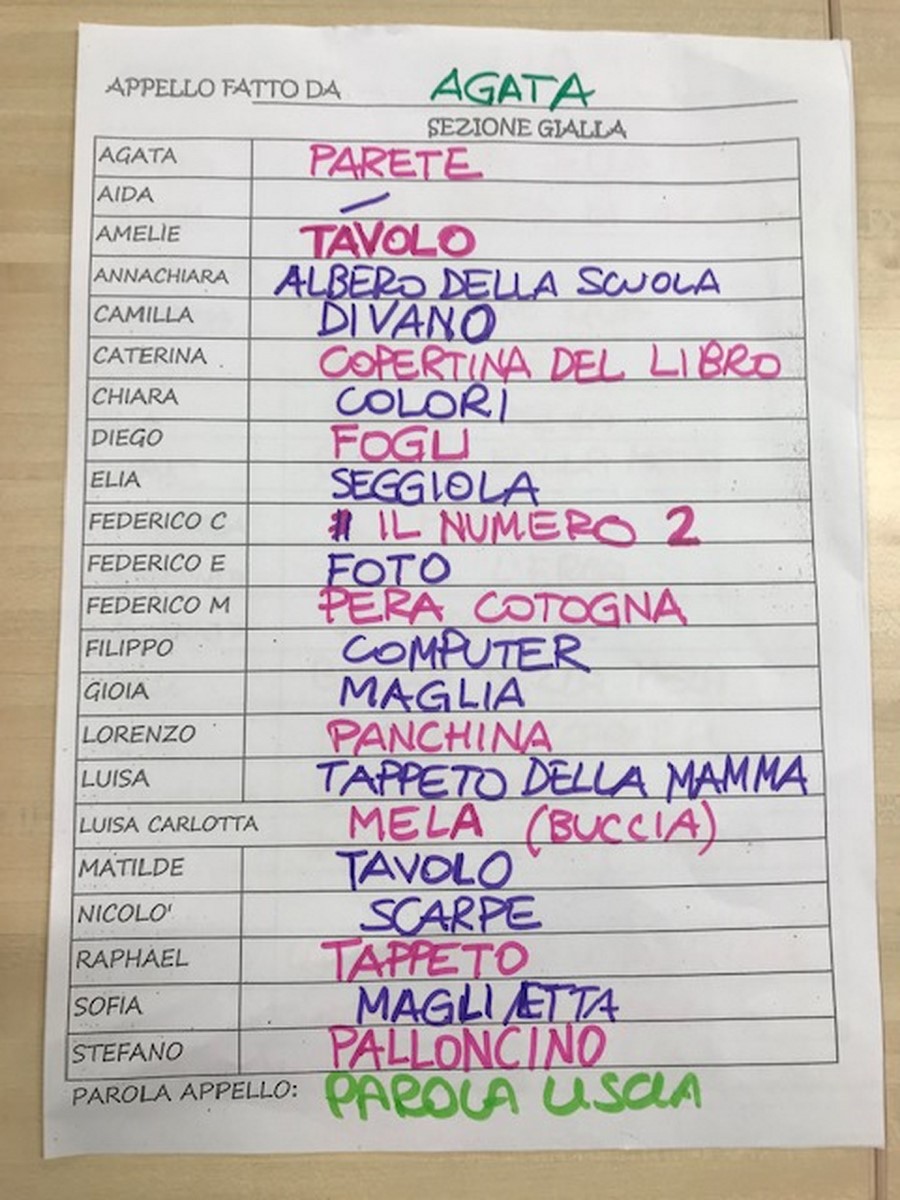 APPELLO FATTO DA AGATA
SEZIONE GIALLA
AGATA PARETE
AIDA /
AMELIE TAVOLO
ANNACHIARA ALBERO DELLA SCUOLA
CAMILLA DIVANO
CATERINA COPERTINA DEL LIBRO
CHIARA COLORI
DIEGO FOGLI
ELIA SEGGIOLA
FEDERICO C IL NUMERO 2
FEDERICO E FOTO
FEDERICO M PERA COTOGNA
FILIPPO COMPUTER
GIOIA MAGLIA
LORENZO PANCHINA
LUISA TAPPETO DELLA MAMMA
LUISA CARLOTTA MELA (BUCCIA)
MATILDE TAVOLO
NICOLO' SCARPE
RAPHAEL TAPPETO
SOFIA MAGLIETTA
STEFANO PALLONCINO
PAROLA APPELLO: PAROLA LISCIA